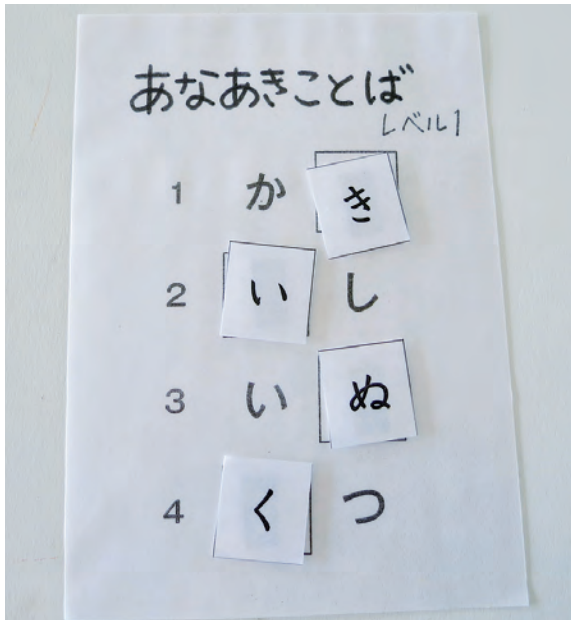 あなあきことば
レベル1
1 かき
2 いし
3 いぬ
4 くつ